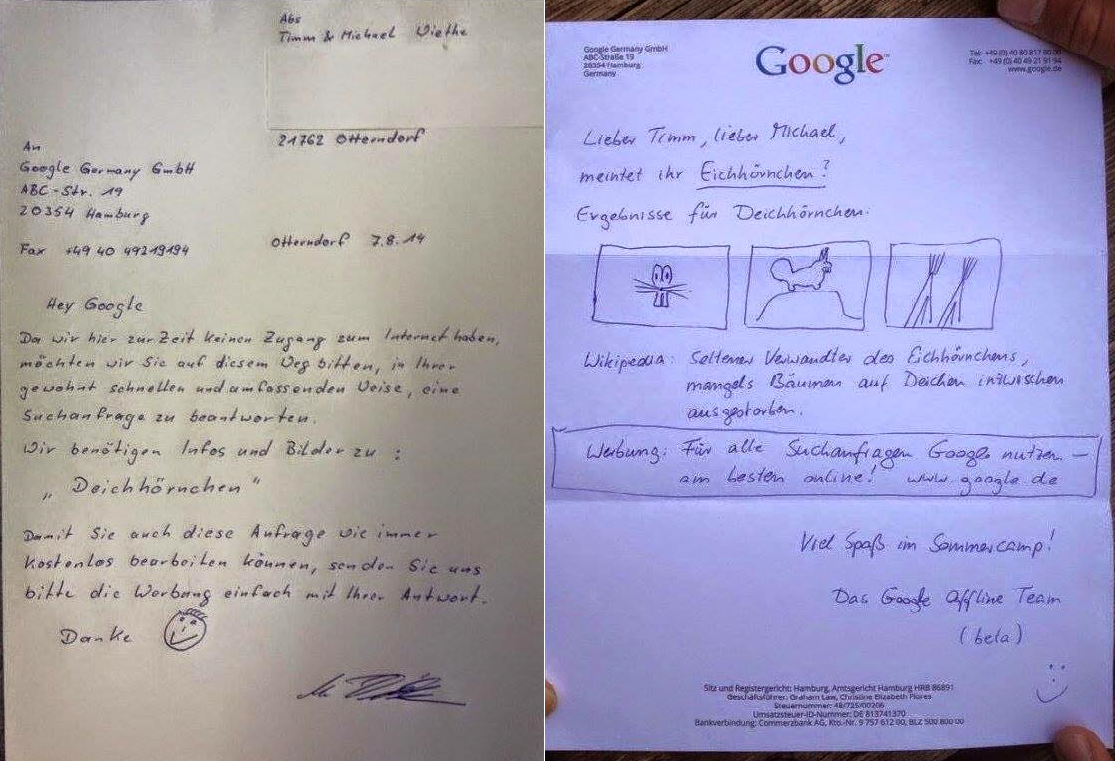 Abs
Timm & Michael Wiethe
21762 Otterndorf
An
Google Germany GmbH
ABC-Str. 19
20354 Hamburg
Fax +49 40 49219194
Otterndorf 7.8.14
Hey Google
Da wir hier zur Zeit keinen Zugang zum Internet haben,
möchten wir Sie auf diesem Weg bitten, in Ihrer
gewohnt schnellen und umfassenden Weise, eine
Suchanfrage zu beantworten.
Wir benötigen Infos und Bilder zu :
„ Deichhörnchen "
Damit Sie auch diese Anfrage wie immer
kostenlos bearbeiten können, senden Sie uns
bitte die Werbung einfach mit Ihrer Antwort.
Danke
Google Germany GmbH
ABC-Straße 19
20354 Hamburg
Germany
Google™
Tel: +49 (0) 40 80 817 90 00
Fax: +49 (0) 40 49 21 91 94
www.google.de
Lieber Timm, lieber Michael,
meintet ihr Eichhörnchen?
Ergebnisse für Deichhörnchen:
Wikipedia: Seltener Verwandter des Eichhörnchens,
mangels Bäumen auf Deichen inzwischen
ausgestorben.
Werbung: Für alle Suchanfragen Google nutzen –
am besten online! www.google.de
Viel Spaß im Sommercamp!
Das Google Offline Team
(beta)
Sitz und Registergericht: Hamburg, Amtsgericht Hamburg HRB 86891
Geschäftsführer: Graham Law, Christine Elizabeth Flores
Steuernummer: 48/725/00206
Umsatzsteuer-ID-Nummer: DE 813741370
Bankverbindung: Commerzbank AG, Kto.-Nr. 9 757 612 00, BLZ 500 800 00